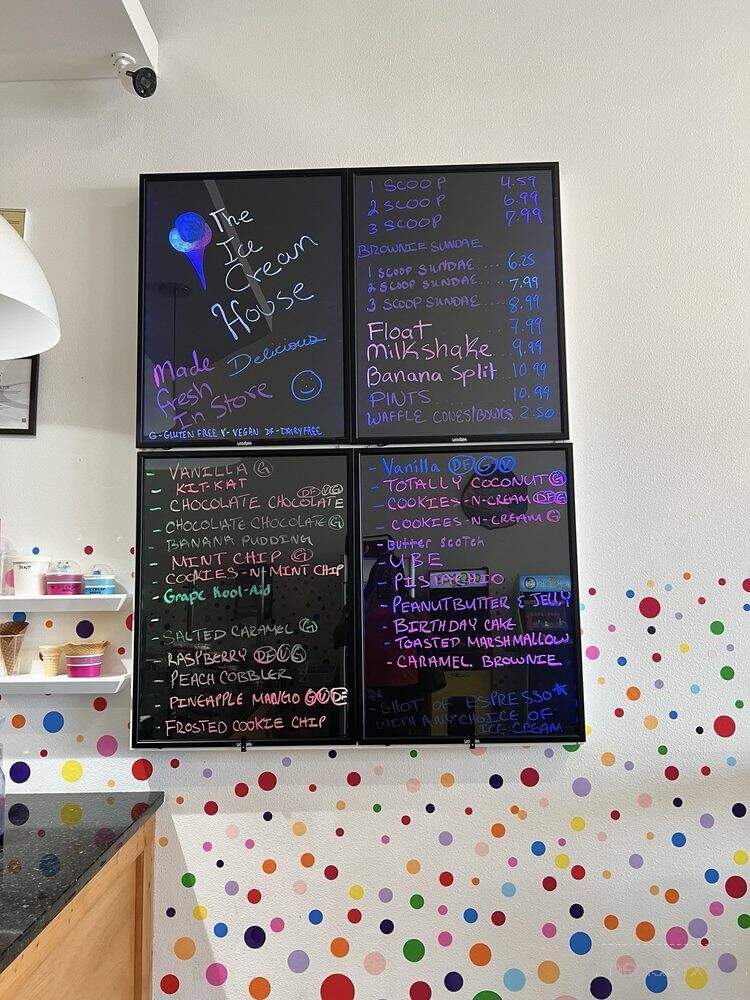 The
Ice
Cream
House
Made
Delicious
fresh
In Store
G-GLUTEN FREE V-VEGAN DF-DAIRY FREE
1 SCOOP 4.59
2 SCOOP 6.99
3 SCOOP 7.99
BROWNIE SUNDAE
1 SCOOP SUNDAE.... 6.25
2 SCOOP SUNDAE.... 7.99
3 SCOOP SUNDAE.... 8.99
Float ... 7.99
Milkshake 9.99
Banana Split 10.99
PINTS ... 10.99
WAFFLE CONES/BOWLS 2.50
- VANILLA G
- KIT-KAT
- CHOCOLATE CHOCOLATE DF V G
- CHOCOLIATE CHOCOLATE G
- BANANA PUDDING
- MINT CHIP G
- COOKIES-N-MINT CHIP
- Grape Kool-Aid
-
- SALTED CARAMEL G
- RASPBERRY DF V G
- PEACH COBBLER
- PINEAPPLE MANGO G V DF
- FROSTED COOKIE CHIP
- Vanilla DF G V
- TOTALLY COCONUT G
- COOKIES-N-CREAM DF G
- COOKIES-N-CREAM G
- Butter Scotch
- UBE
- PISTACHIO
- PEANUTBUTTER & JELLY
- BIRTHDAY CAKE
- TOASTED MARSHMALLOW
- CARAMEL BROWNIE
- SHOT OF ESPRESSO
WITH ANY CHOICE OF
ICE CREAM